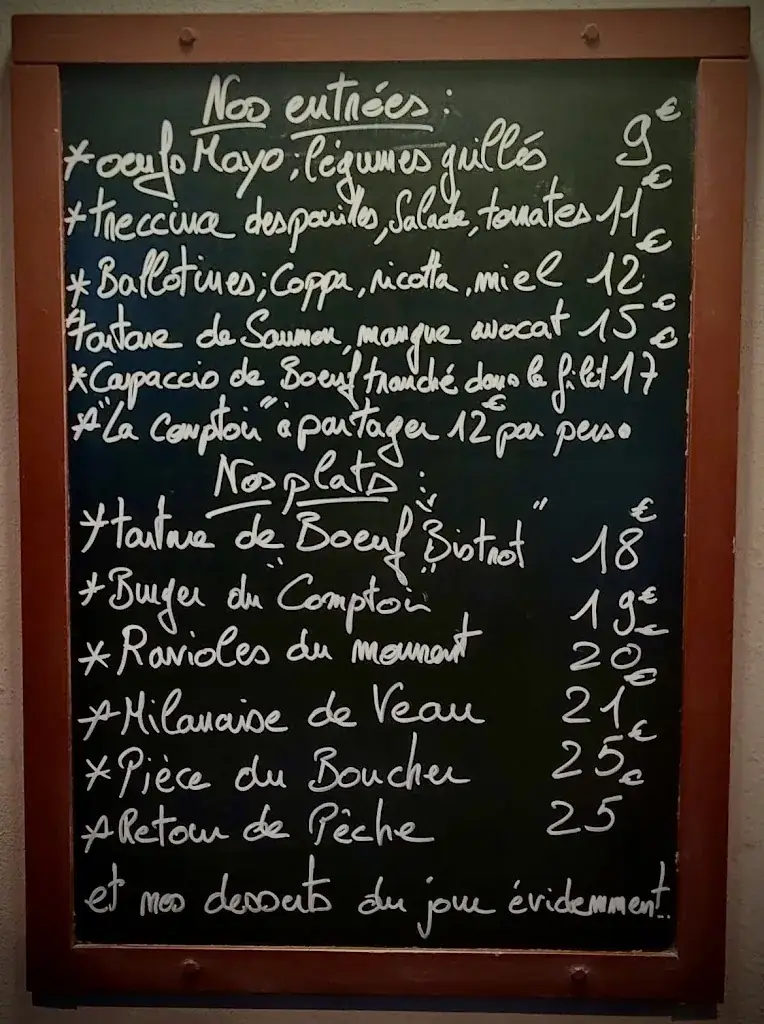 Nos entrées :
* oeufs Mayo ; légumes grillés 9€
* treccina des pouilles, Salade, tomates 11€
* Ballotines ; Coppa, ricotta, miel 12€
* tartare de Saumon, mangue avocat 15€
* Carpaccio de Boeuf tranché dans le filet 17€
* "La Comptoir" à partager 12€ par pers.
Nos plats :
* tartare de Boeuf "Bistrot" 18€
* Burger du "Comptoir" 19€
* Ravioles du moment 20€
* Milanaise de Veau 21€
* Pièce du Boucher 25€
* Retour de Pêche 25€
et nos desserts du jour évidemment..